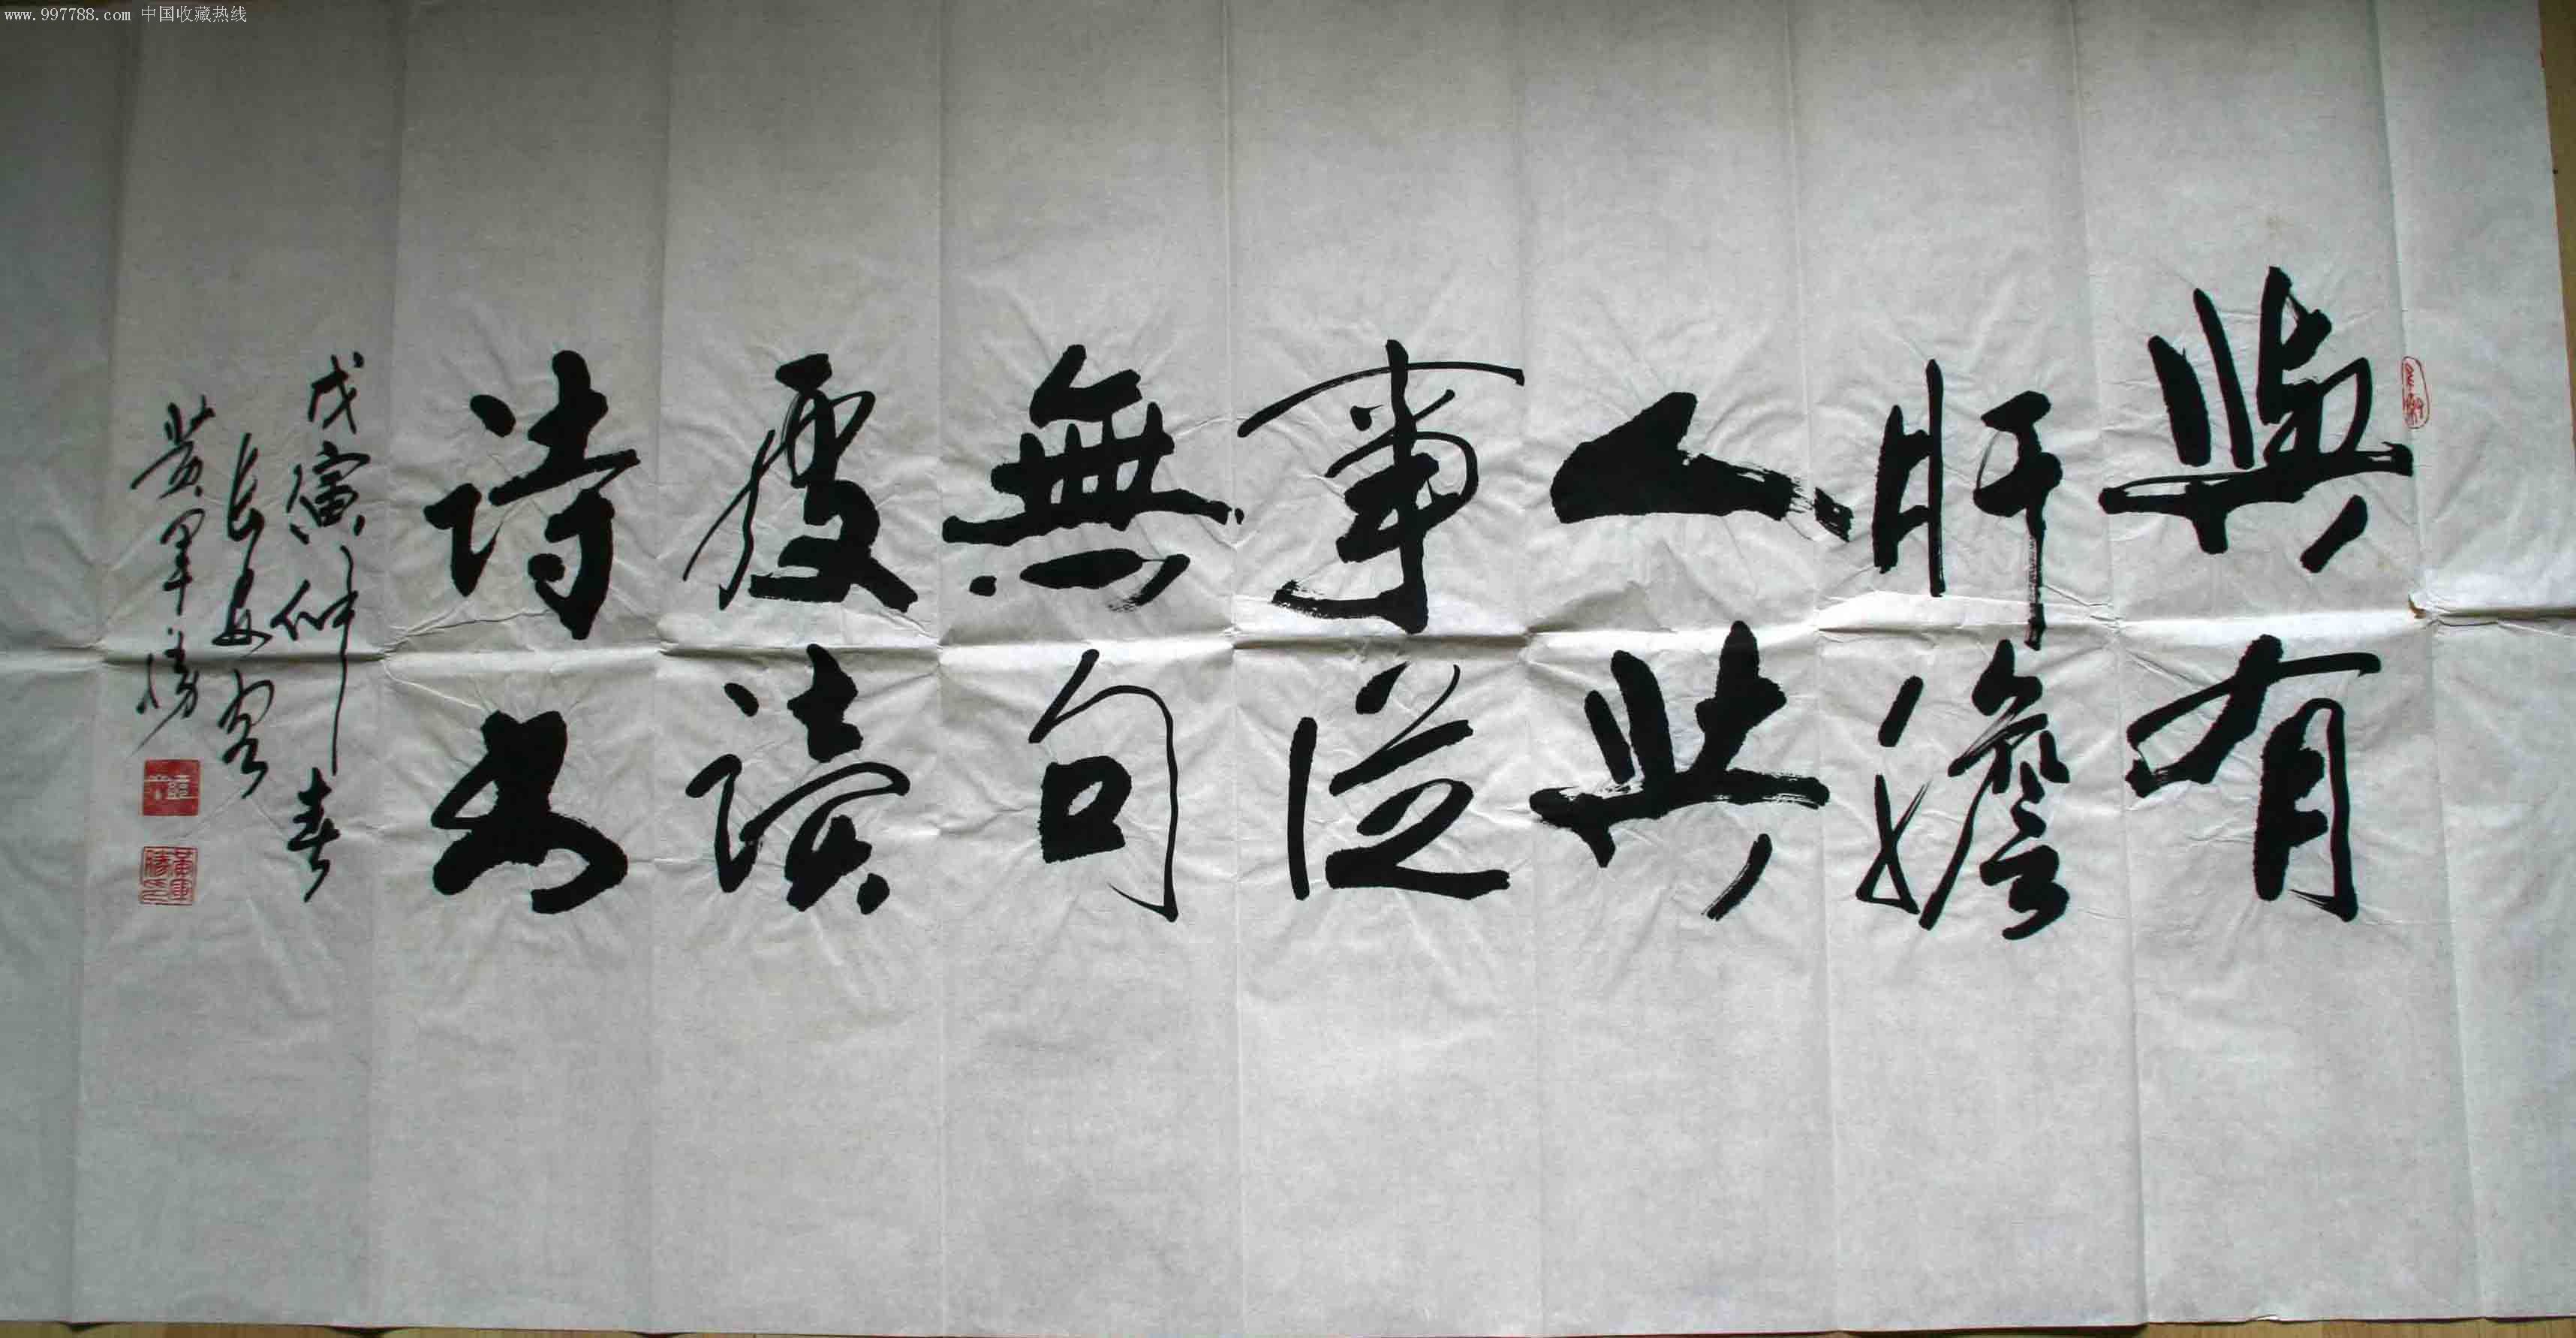 www.997788.com 中国收藏热线
與有
肝膽
人共
事從
無句
處讀
詩書
戊寅仲春
長安客
黃軍勝
黃軍勝印